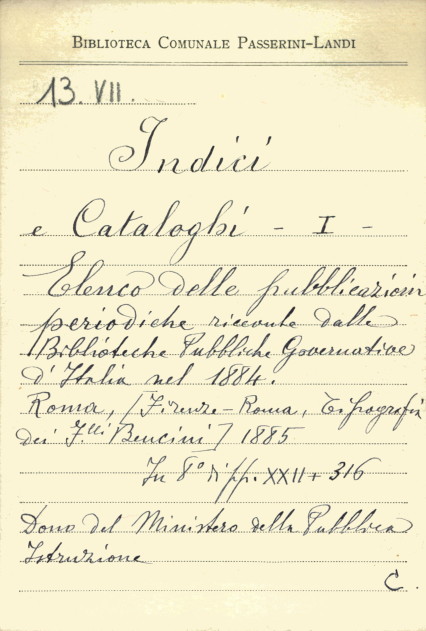 BIBLIOTECA COMUNALE PASSERINI-LANDI
13. VII.
Indici
e Cataloghi - I -
Elenco delle pubblicazioni
periodiche ricevute dalle
Biblioteche Pubbliche Governative
d'Italia nel 1884.
Roma, [Firenze-Roma, Tipografia
dei F.lli Bencini] 1885
In 8° di pp. XXII + 316
Dono del Ministero della Pubblica
Istruzione
C.